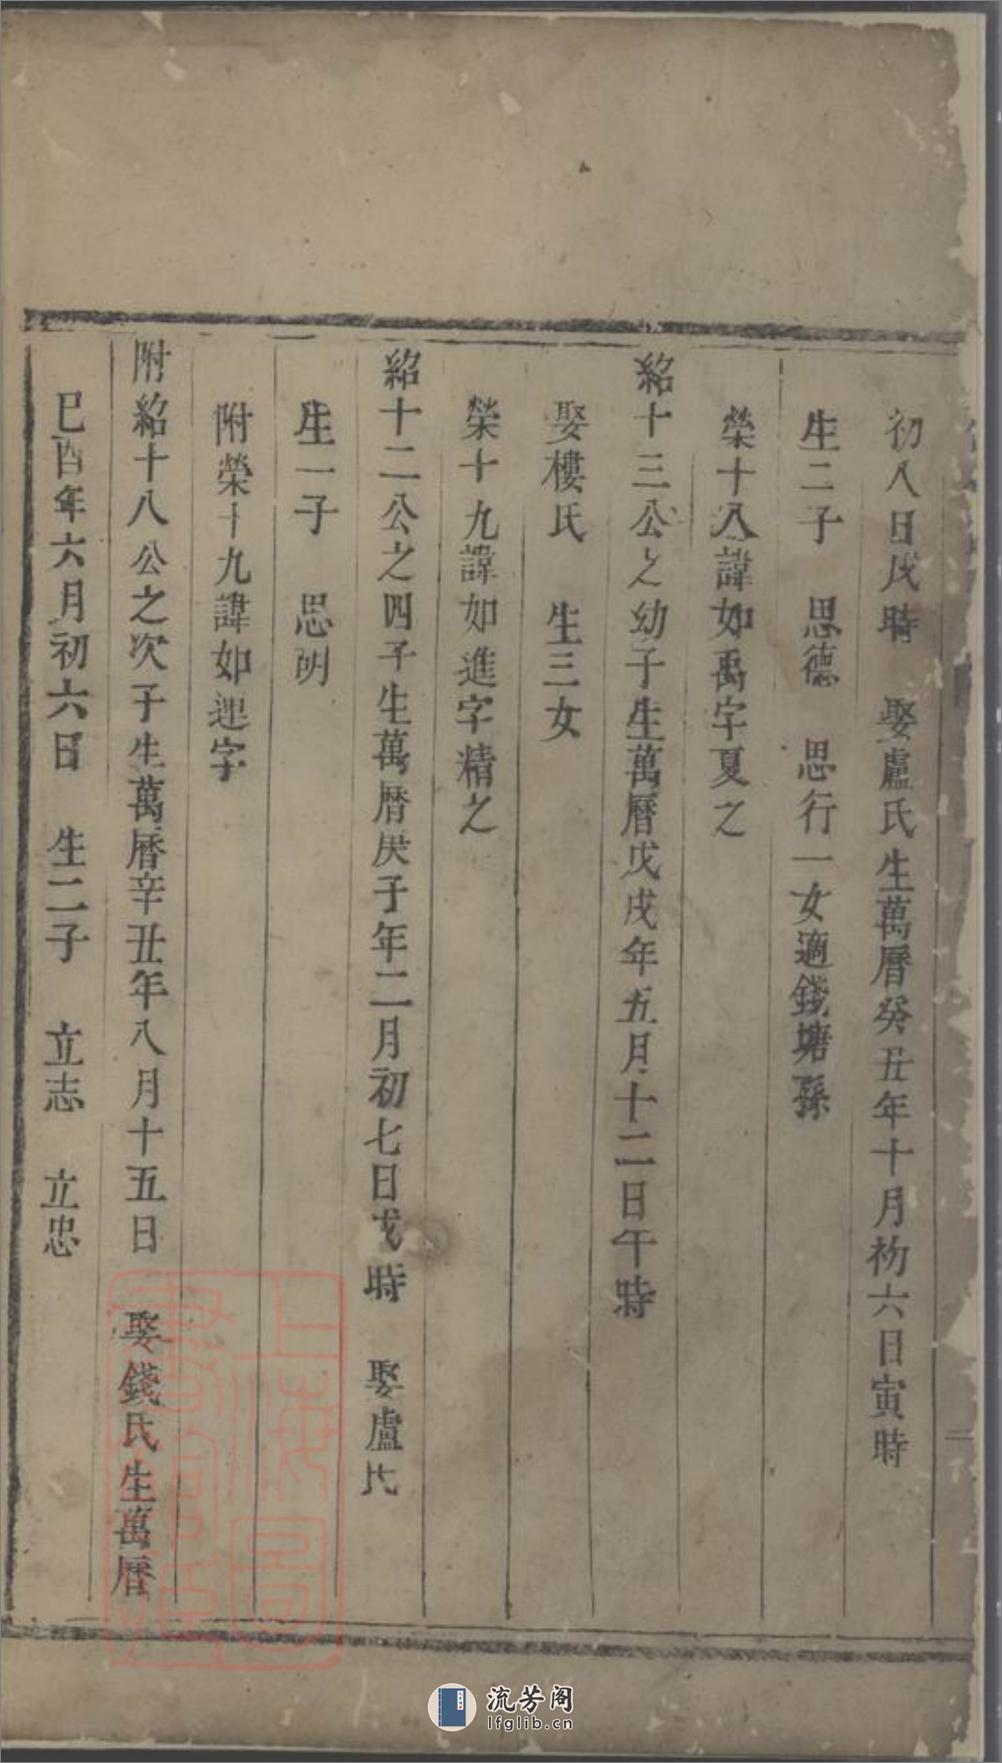 初八日戌時 娶盧氏生萬曆癸丑年十月初六日寅時
生二子 思德 思行一女適錢塘孫
榮十八諱如禹字夏之
紹十三公之幼子生萬曆戊戌年五月十二日午時
娶樓氏 生三女
榮十九諱如進字精之
紹十二公之四子生萬曆庚子年二月初七日戌時 娶盧氏
生一子 思明
附榮十九諱如逞字
附紹十八公之次子生萬曆辛丑年八月十五日 娶錢氏生萬曆
巳酉年六月初六日 生二子 立志 立忠
上海圖書館藏
流芳阁
lfglib.cn